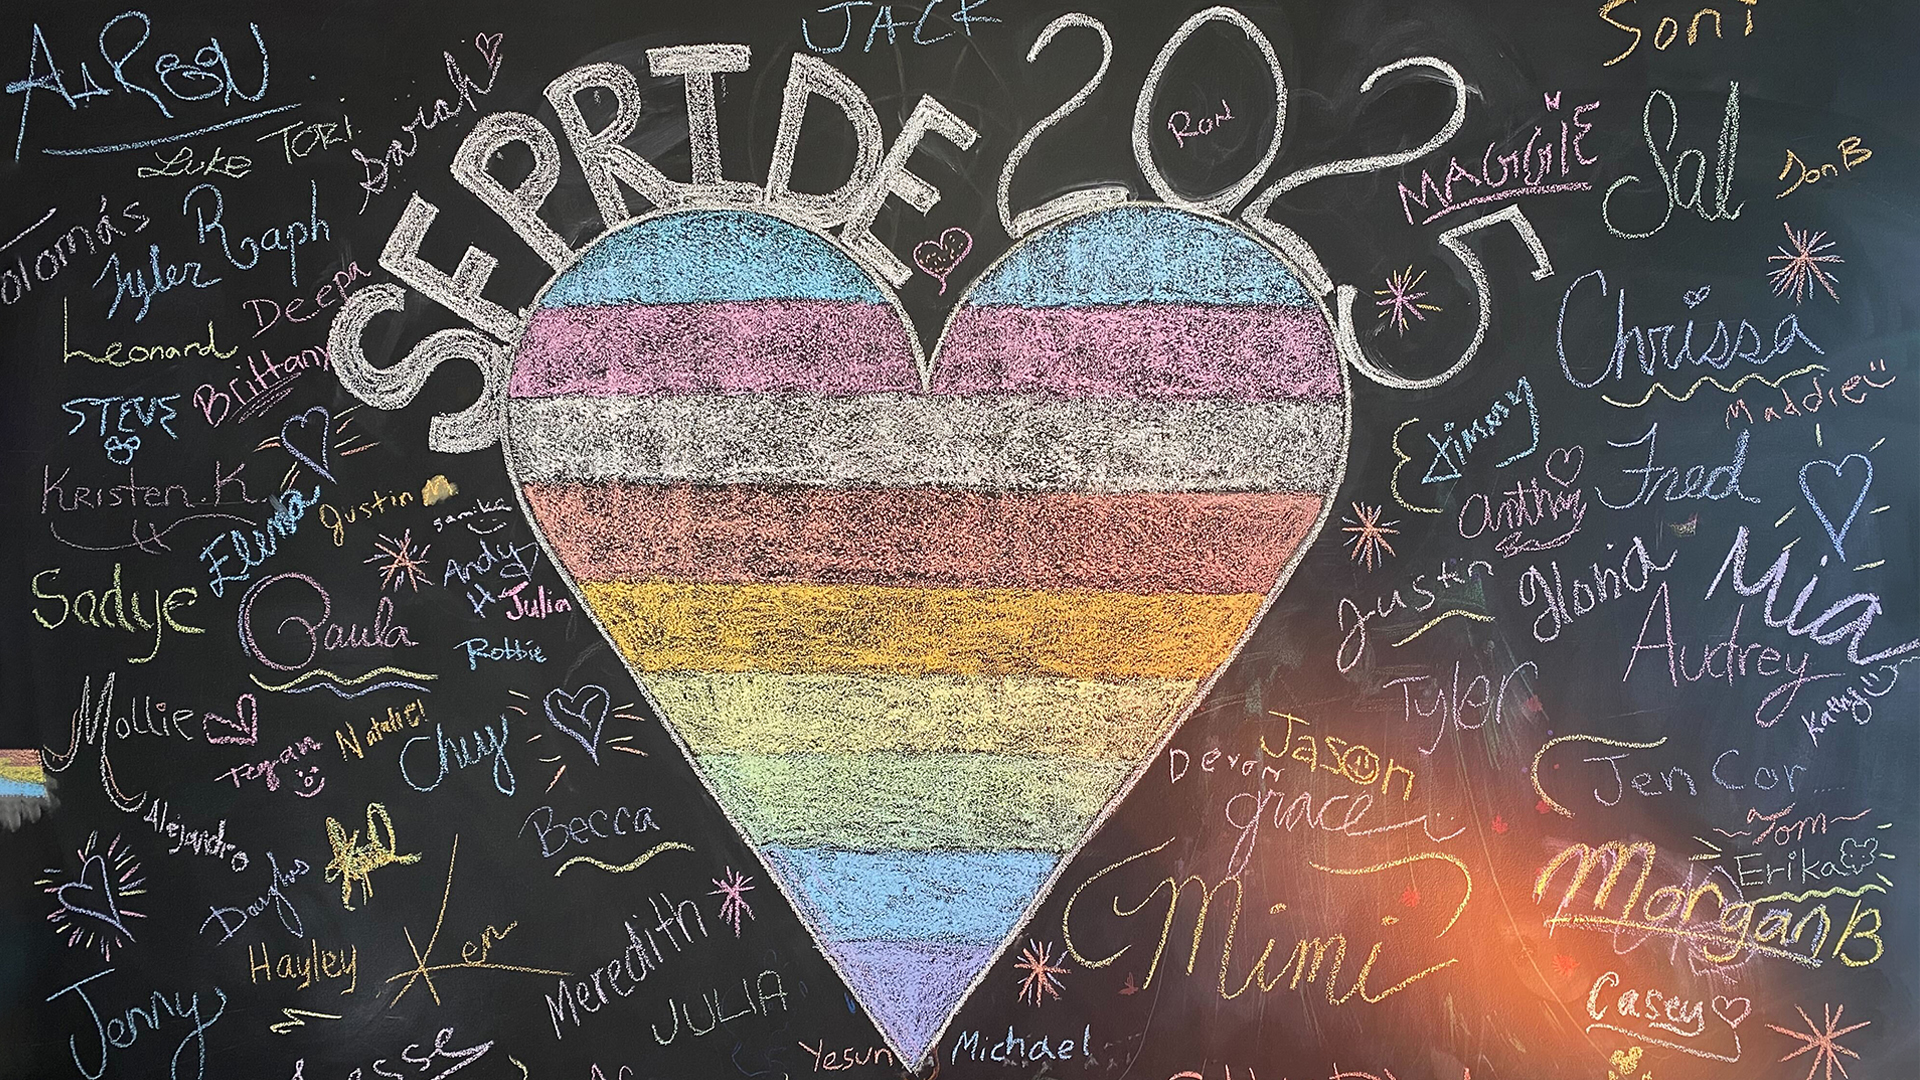 SEPRIDE 2025
JACK
Soni
AARON
Sarah
TORI
Luke
Ron
MAGGIE
Sal
Jon B
Tomás
Raph
Tyler
Deepa
Leonard
Brittany
Chrissa
Maddie
STEVE
Jimmy
Kristen K
Justin
Samika
Elena
Anthony
Fred
Andy H
Sadye
Julia
Paula
Robbie
Justin
Ilona
Mia
Audrey
Kathy
Tyler
Mollie
Tegan
Natalie!
Chuy
Jason
Devon
Jen Cor
grace
Alejandro
Becca
Tom
Erika
Douglas
Morgan B
Hayley
Ken
Meredith
Mimi
JULIA
Jenny
Casey
Yesun
Michael